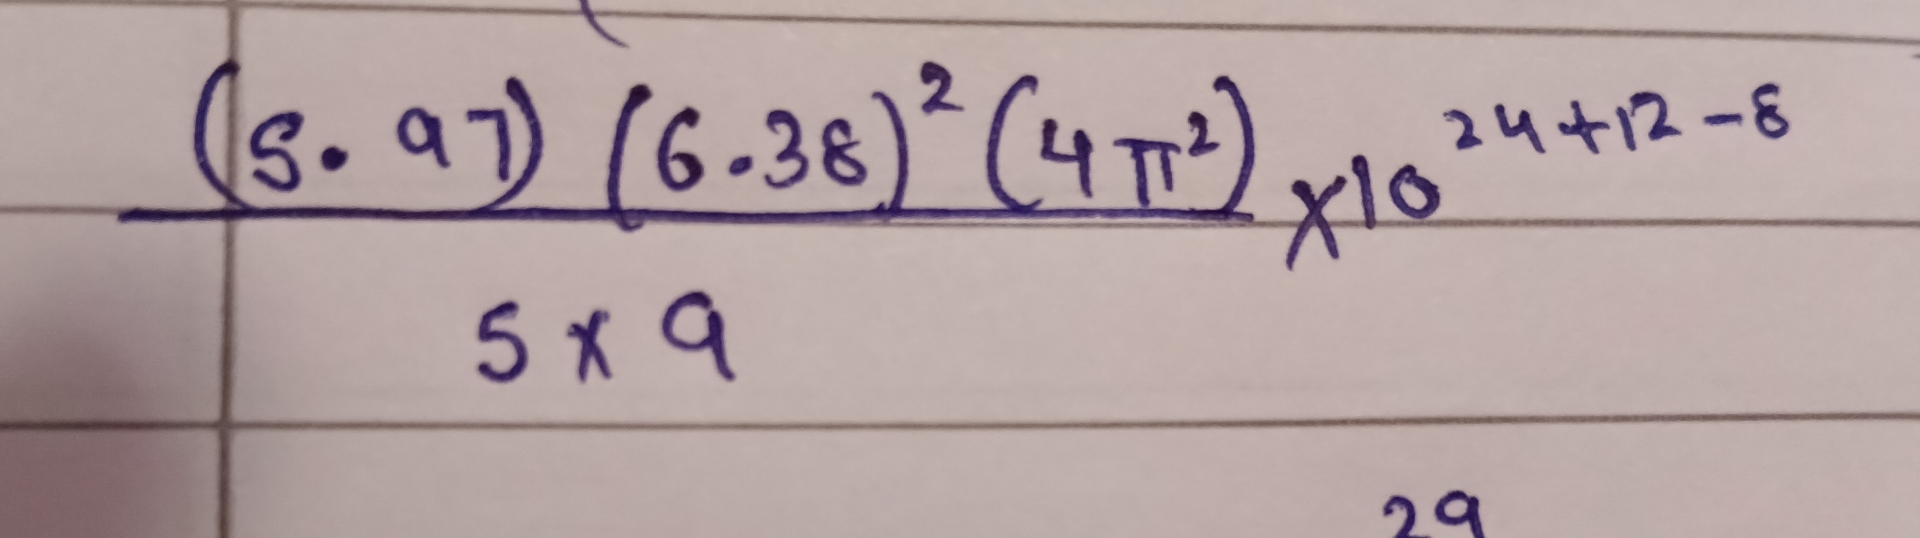 (5.97) (6.38)² (4π²) ×10²⁴⁺¹²⁻⁸
5 × 9
29